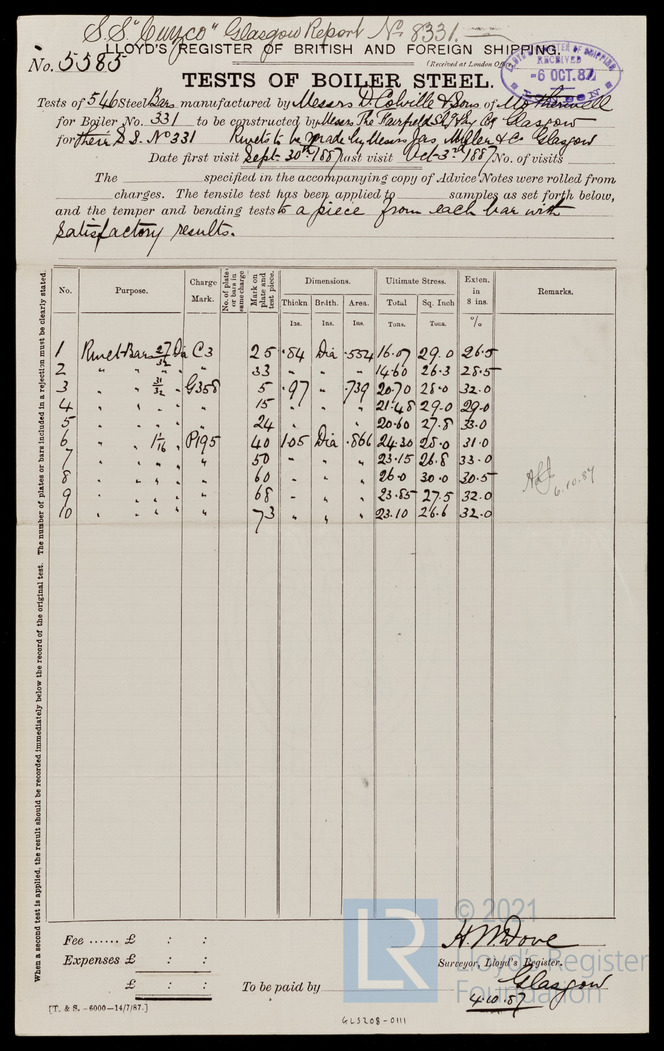 S.S "Cuzco" Glasgow Report No. 8331.
LLOYD'S REGISTER OF BRITISH AND FOREIGN SHIPPING.
No. 5585
(Received at London Office
LLOYD'S REGISTER OF SHIPPING RECEIVED -6 OCT.87 LONDON
TESTS OF BOILER STEEL.
Tests of 546 Steel Bars manufactured by Messrs D. Colville & Sons of Motherwell
for Boiler No. 331 to be constructed by Messrs The Fairfield S. & Co Glasgow
for their S.S. No 331 Rivets to be made by Messrs Jas Miller & Co Glasgow
Date first visit Sept. 30th 1887 last visit Oct. 3rd 1887 No. of visits
The specified in the accompanying copy of Advice Notes were rolled from
charges. The tensile test has been applied to samples as set forth below,
and the temper and bending tests to a piece from each bar with
satisfactory results.
No. Purpose. Charge Mark. No. of plates or bars in same charge Mark on plate and test piece. Dimensions. Ultimate Stress. Exten. in 8 ins. Remarks.
Thickn Br'dth. Area. Total Sq. Inch
Ins. Ins. Ins. Tons. Tons. %
1 Rivet Bars 27/32 Dia C3 25 .84 Dia .554 16.07 29.0 26.5
2 " " " " " 33 " " " 14.60 26.3 28.5
3 " " 31/32 " G358 5 .97 " .739 20.70 28.0 32.0
4 " " " " " 15 " " " 21.48 29.0 29.0
5 " " " " " 24 " " " 20.60 27.8 33.0
6 " " 1 1/16 " P195 40 1.05 Dia .866 24.30 28.0 31.0
7 " " " " " 50 " " " 23.15 26.8 33.0
8 " " " " " 60 " " " 26.0 30.0 30.5
9 " " " " " 68 " " " 23.85 27.5 32.0
10 " " " " " 73 " " " 23.10 26.6 32.0
6.10.87
When a second test is applied, the result should be recorded immediately below the record of the original test. The number of plates or bars included in a rejection must be clearly stated.
Fee ...... £ : :
Expenses £ : :
£ : :
To be paid by
H. McDove
Surveyor, Lloyd's Register.
Glasgow
4.10.87
[T. & S. -6000-14/7/87.]
GLS208-0111
LR
© 2021
Lloyd's Register
Foundation